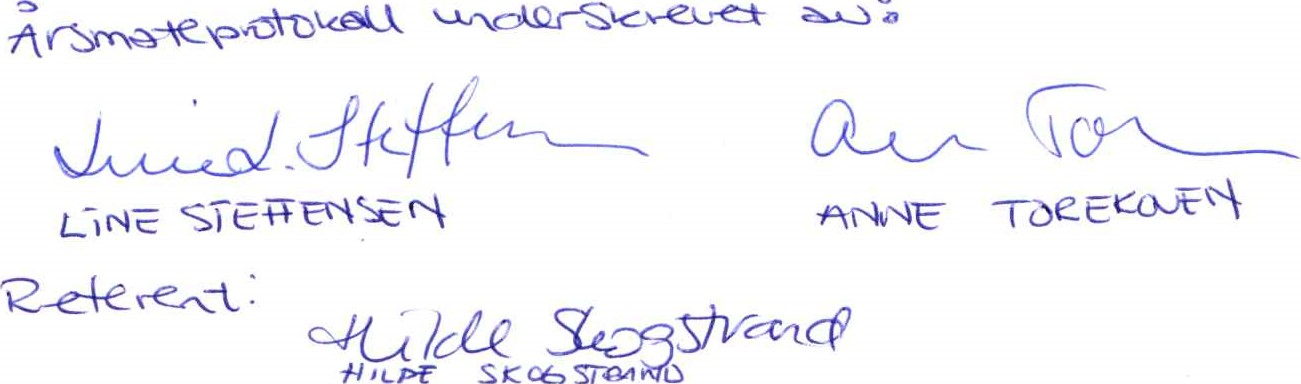 Årsmøteprotokoll underskrevet av:
Line L. Steffen
LINE STEFFENSEN
ANNE TOREKOVEN
Referent:
Hilde Skogstrand
HILDE SKOGSTRAND